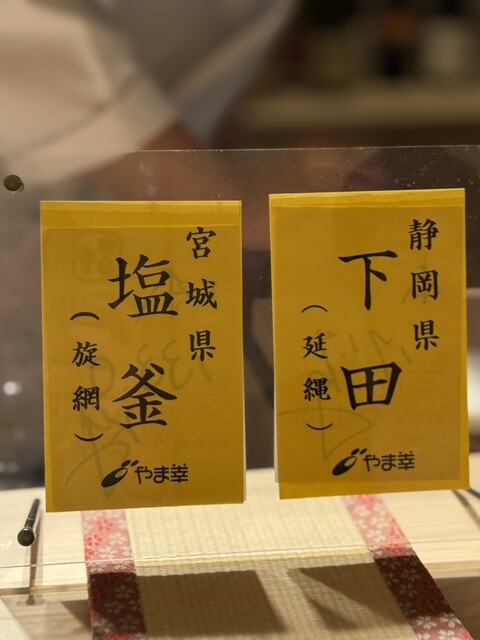 静岡県
下田
（延縄）
やま幸
宮城県
塩釜
（旋網）
やま幸